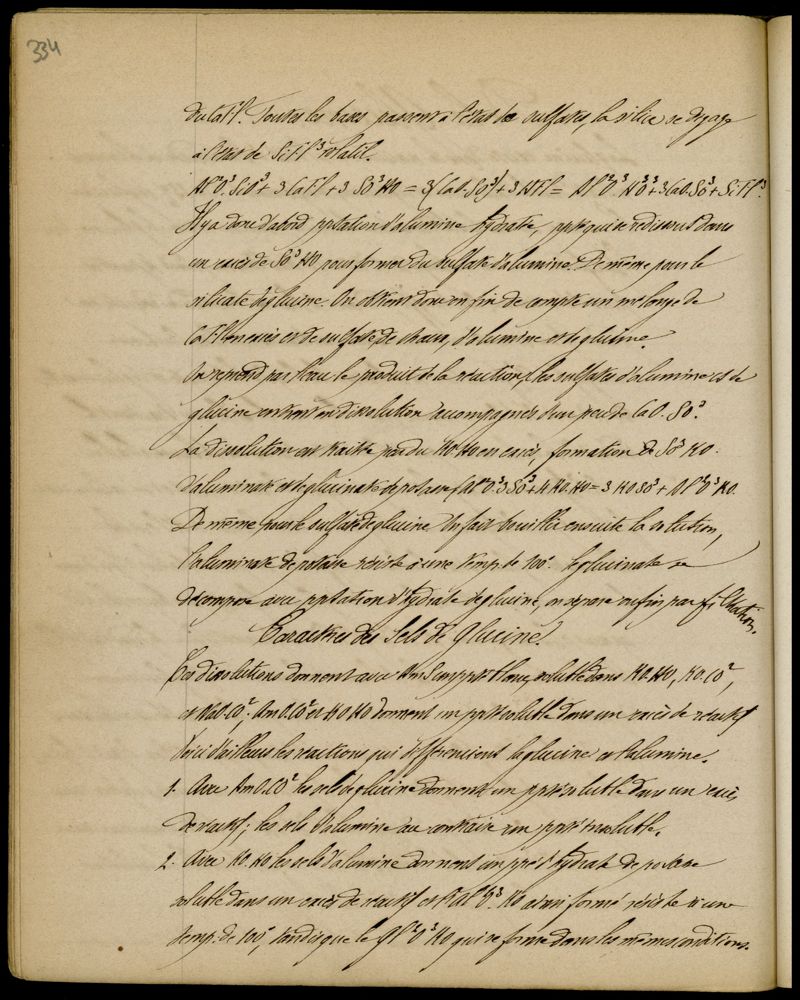 334
du CaFl. Toutes les bases passent à l'état de sulfates, la silice se dégage
à l'état de SiFl³ volatil.
Al²O³.SiO³ + 3 CaFl + 3 SO³HO = 3(CaO.SO³) + 3 HFl = Al²O³ 3SO³ + 3CaO.SO³ + SiFl³.
Il y a donc d'abord pptation d'alumine hydratée, ppté qui se redissout dans
un excès de SO³HO pour former du sulfate d'alumine. De même pour le
silicate de glucine. On obtient donc en fin de compte un mélange de
CaFl en excès et de sulfate de chaux, d'alumine et de glucine.
On reprend par l'eau le produit de la réaction, les sulfates d'alumine et de
glucine entrent en dissolution accompagnés d'un peu de CaO.SO³.
La dissolution est traitée par du KO.HO en excès, formation de SO³KO.
d'aluminate et de glucinate de potasse Al²O³.3SO³ + 4 KO.HO = 3 KOSO³ + Al²O³KO.
De même pour le sulfate de glucine. On fait bouillir ensuite la solution,
l'aluminate de potasse résiste à une temp. de 100°. Le glucinate se
décompose avec pptation d'hydrate de glucine, on sépare enfin par filtration.
Caractères des Sels de Glucine.
Les dissolutions donnent avec AmS un ppté blanc, soluble dans KO.HO, KO.CO²,
et NaO.CO²; AmO.CO² et KOHO donnent un ppté soluble dans un excès de réactif
Voici d'ailleurs les réactions qui différencient la glucine et l'alumine.
1. Avec AmO.CO² les sels de glucine donnent un ppté soluble dans un excès
de réactif; les sels d'alumine au contraire un ppté insoluble.
2. Avec KO.HO les sels d'alumine donnent un ppté d'hydrate de potasse
soluble dans un excès de réactif et l'Al²O³.KO ainsi formé résiste à une
temp. de 100°, tandis que le Gl²O³KO qui se forme dans les mêmes conditions.